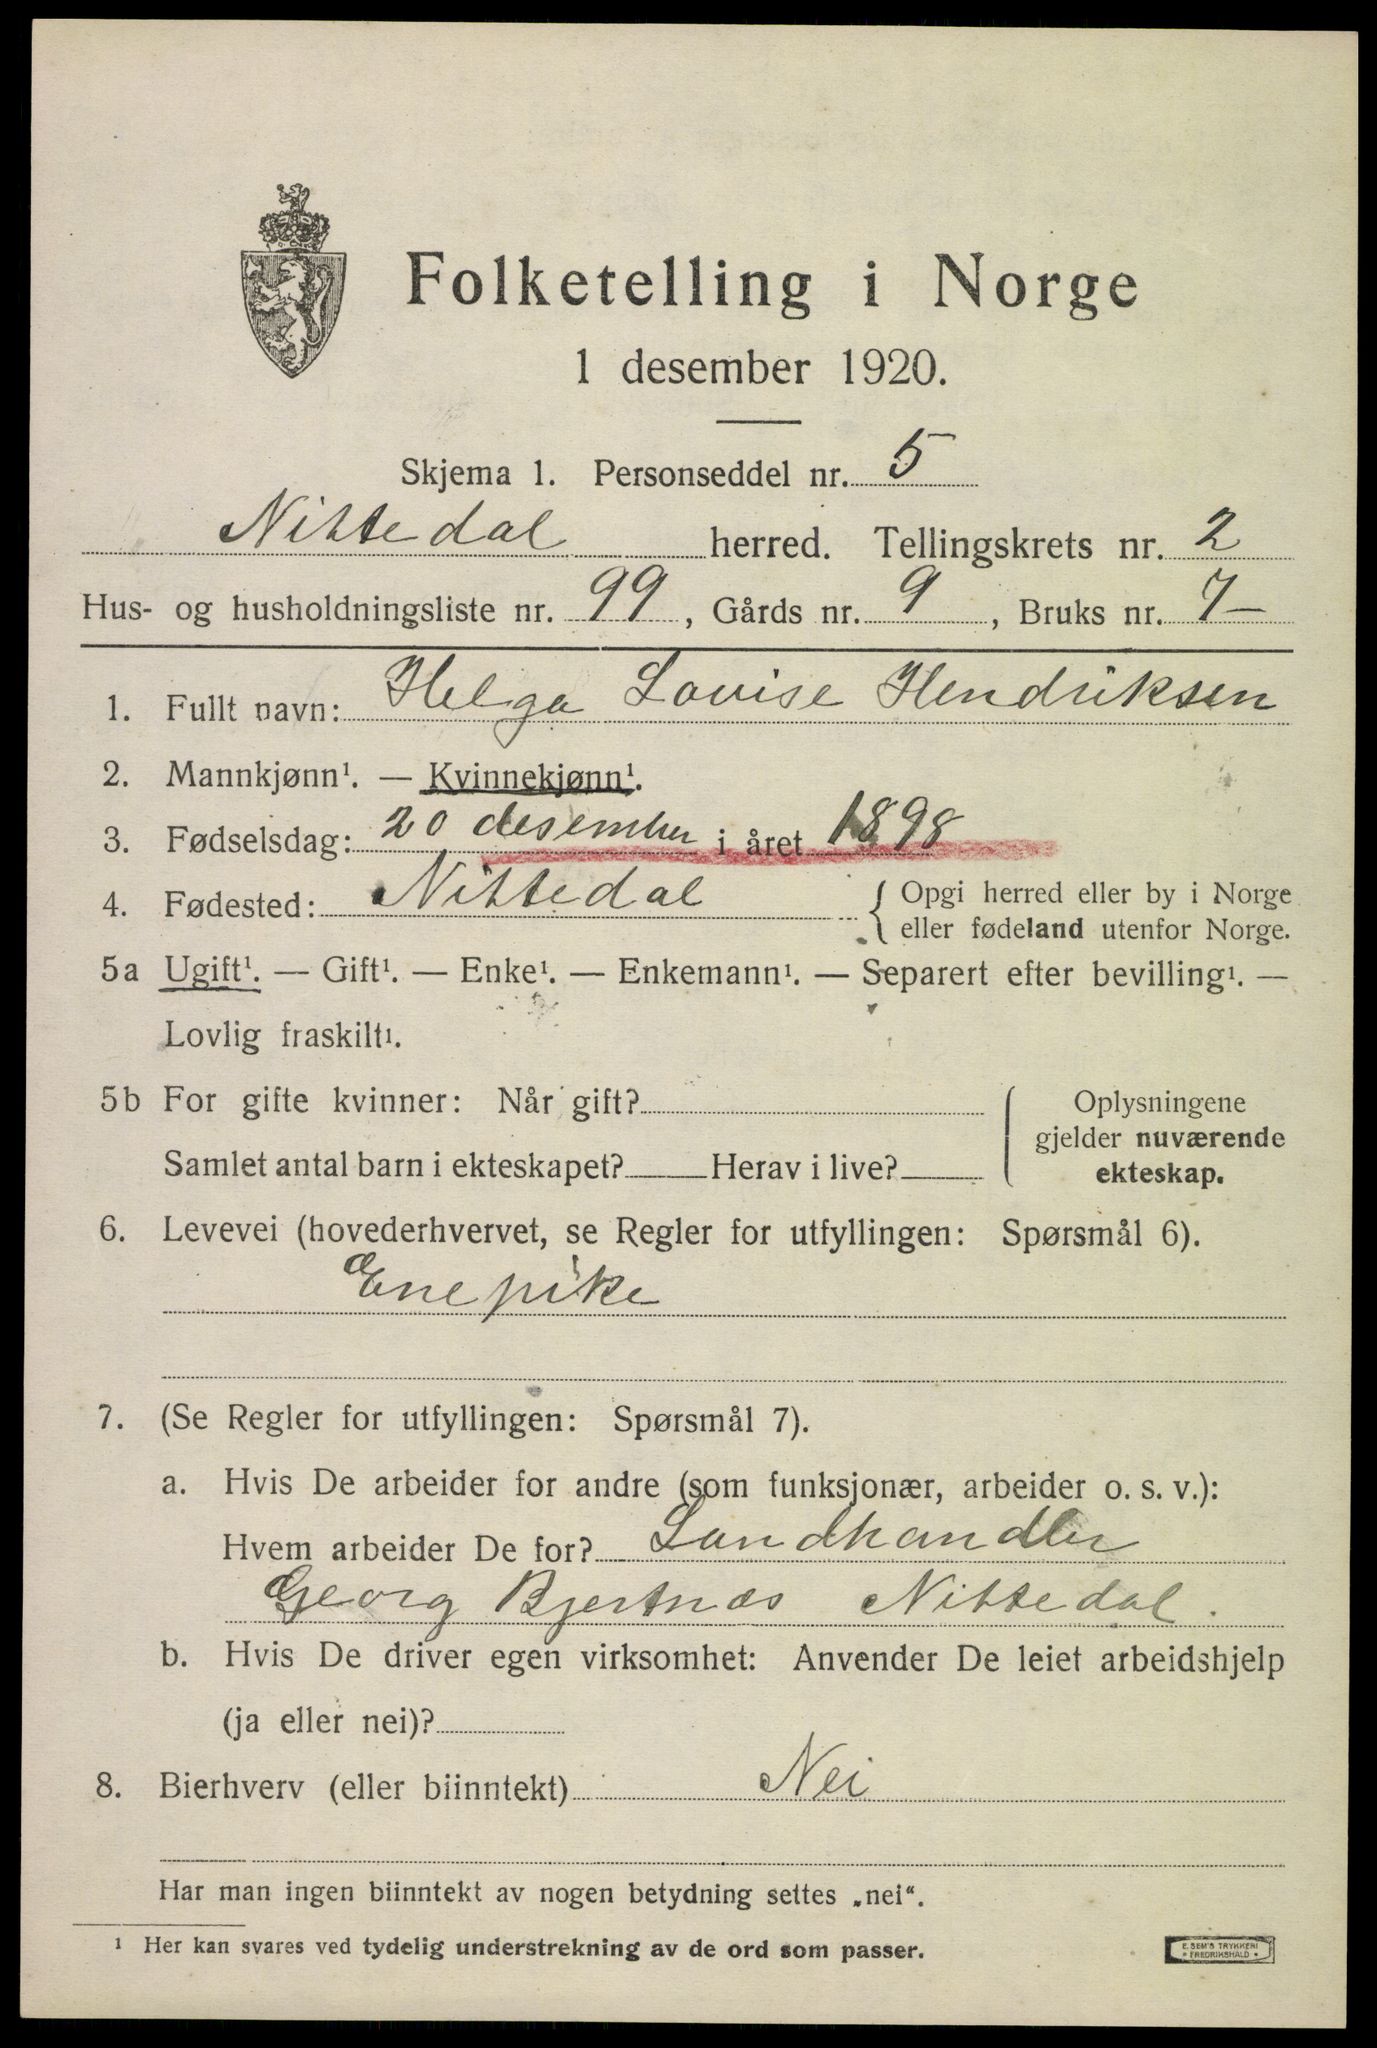 Folketelling i Norge
1 desember 1920.
Skjema 1. Personseddel nr. 5
Nittedal herred. Tellingskrets nr. 2
Hus- og husholdningsliste nr. 99, Gårds nr. 9, Bruks nr. 7 –
1. Fullt navn: Helga Lovise Hendriksen
2. Mannkjønn¹. — Kvinnekjønn¹.
3. Fødselsdag: 20 desember i året 1898
4. Fødested: Nittedal { Opgi herred eller by i Norge
eller fødeland utenfor Norge.
5a Ugift¹. — Gift¹. — Enke¹. — Enkemann¹. — Separert efter bevilling¹. —
Lovlig fraskilt¹.
5b For gifte kvinner: Når gift?
Samlet antal barn i ekteskapet? Herav i live?
Oplysningene
gjelder nuværende
ekteskap.
6. Levevei (hovederhvervet, se Regler for utfyllingen: Spørsmål 6).
Enepike
7. (Se Regler for utfyllingen: Spørsmål 7).
a. Hvis De arbeider for andre (som funksjonær, arbeider o. s. v.):
Hvem arbeider De for? Landhandler
Georg Bjertnæs Nittedal.
b. Hvis De driver egen virksomhet: Anvender De leiet arbeidshjelp
(ja eller nei)?
8. Bierhverv (eller biinntekt) Nei
Har man ingen biinntekt av nogen betydning settes „nei“.
¹ Her kan svares ved tydelig understrekning av de ord som passer.
E. SEM'S TRYKKERI
• FREDRIKSHALD •